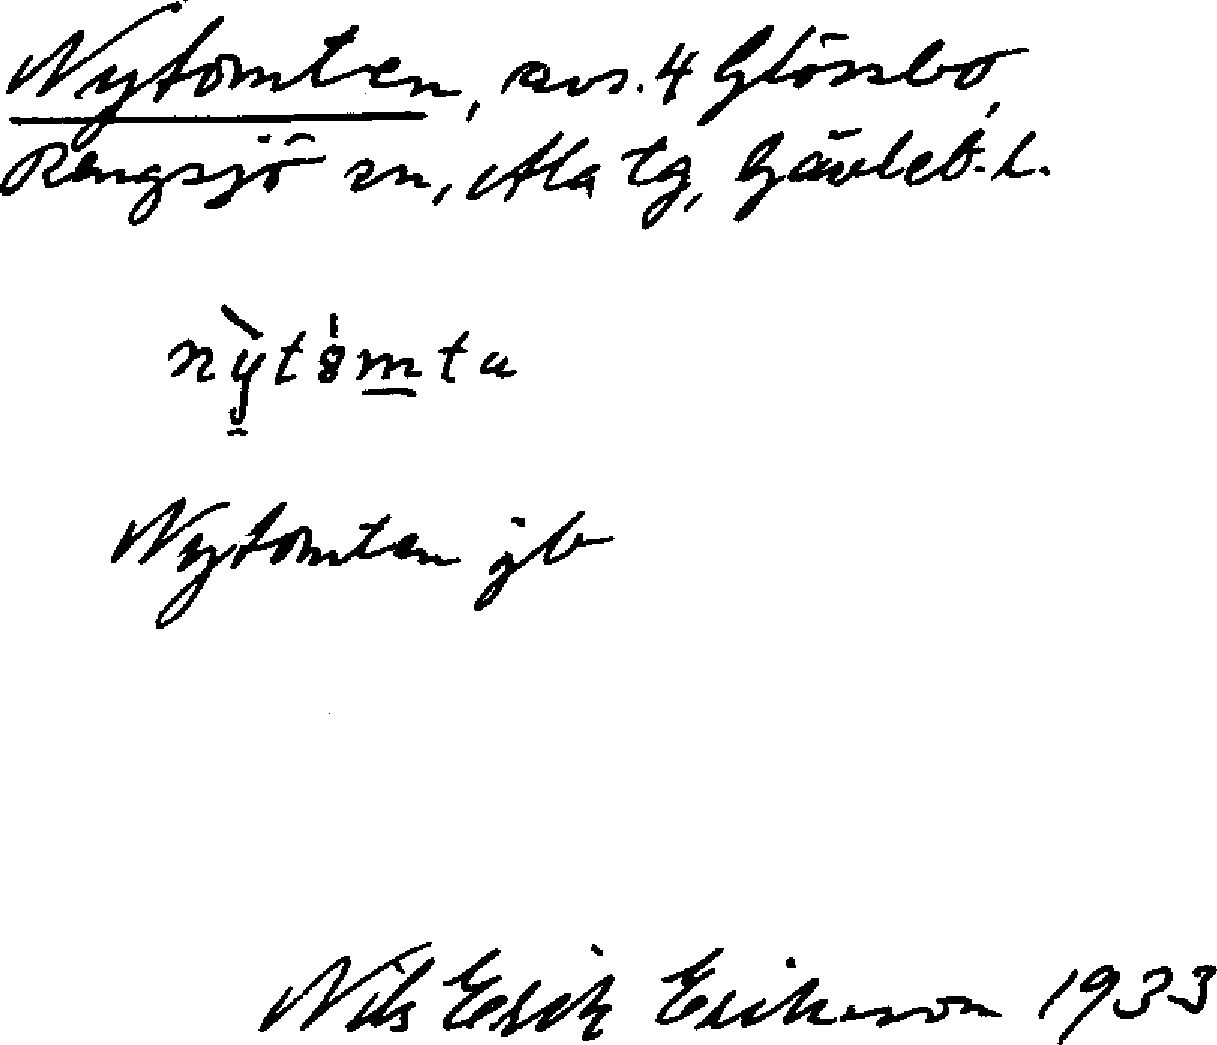 Nytomten, avs. 4 Glössbo,
Rengsjö sn, Ala tg, Gävleb. l.
Nytomten jb
Nils Erik Erikson 1933